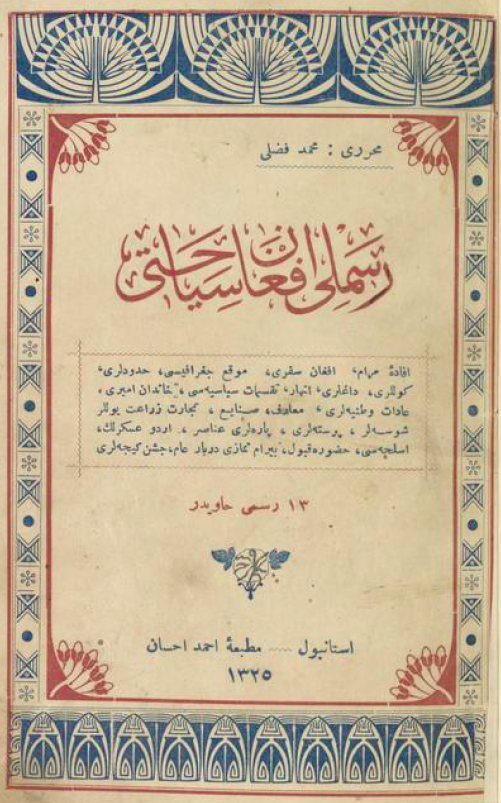 محرری : محمد فضلی
رسملی افغان سیاحتی
افادهٔ مرام، افغان سفری، موقع جغرافیسی، حدودلری،
کوللری، داغلری، انهار، تقسیمات سیاسیه‌سی، خاندان امیری،
عادات وطنیه‌لری، معارف، صنایع، تجارت زراعت یوللر
شوسه‌لر، پوسته‌لری، پاره‌لری عناصر، اردو عسکرلك،
اسلحه‌سی، حضوره قبول، بیرام نمازی دربار عام، جشن کیجه‌لری
۱۳ رسمی حاویدر
استانبول — مطبعهٔ احمد احسان
۱۳۲۵